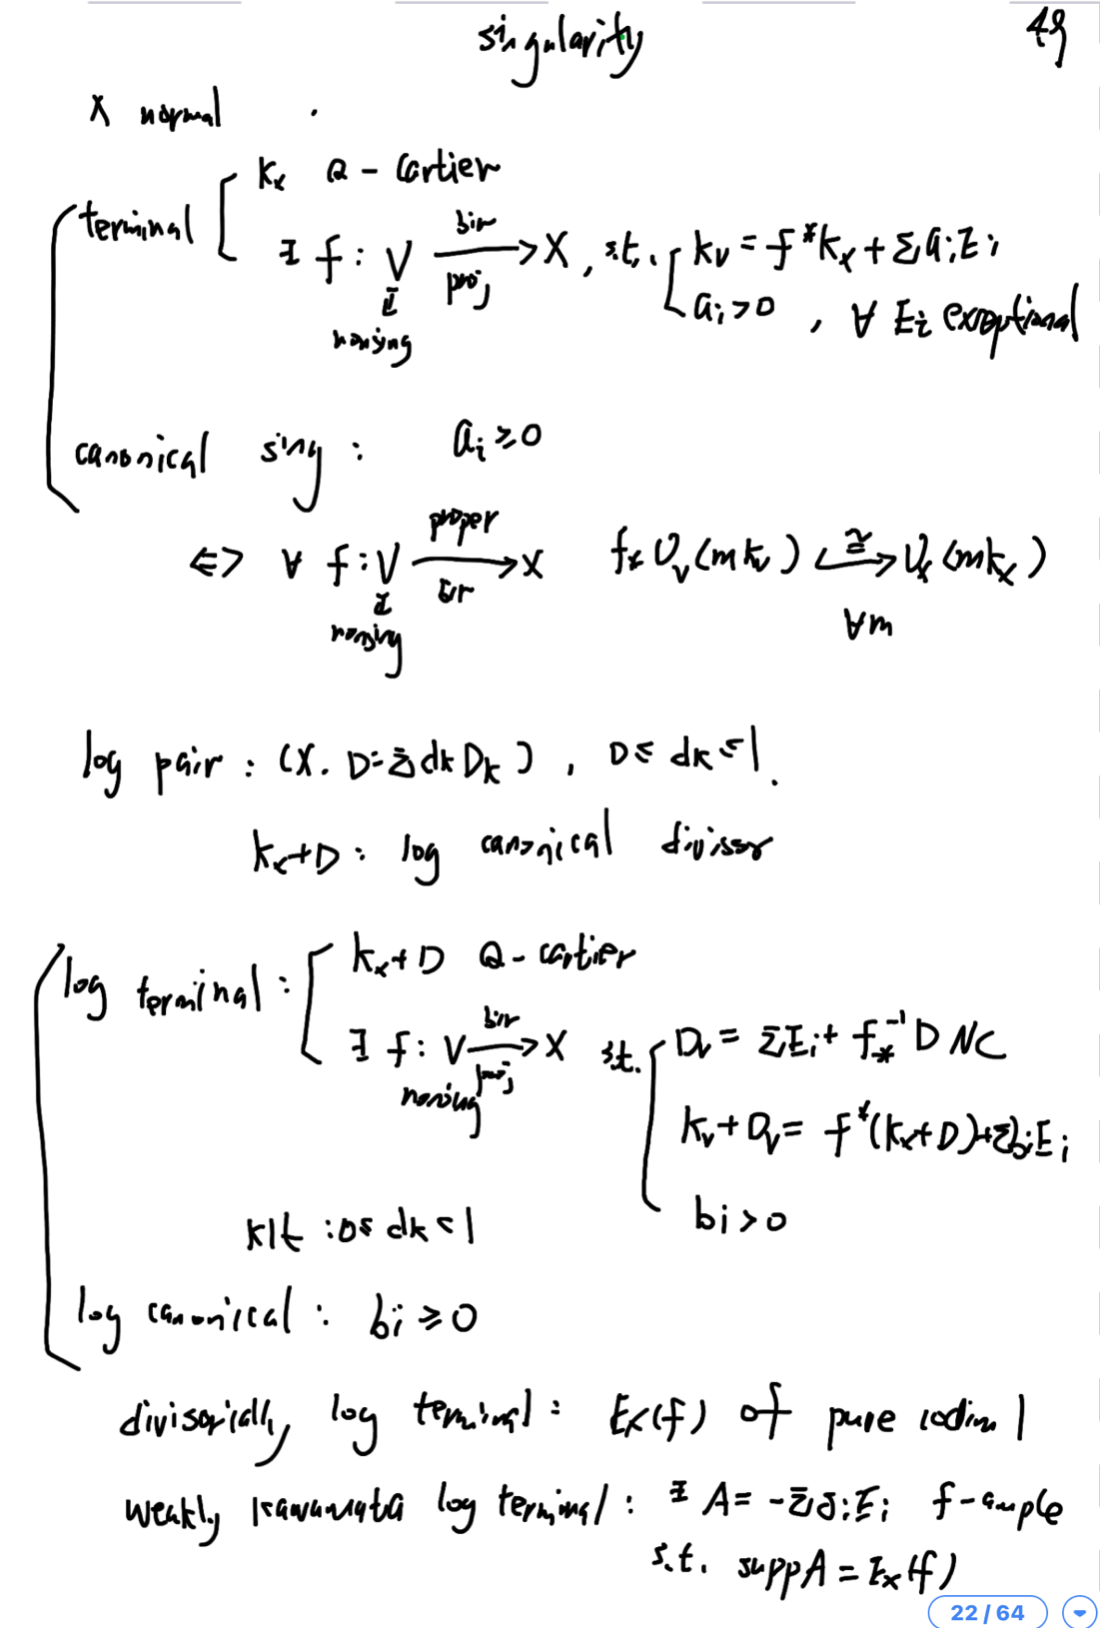 singularity 49
X normal .
terminal [ Kx Q - Cartier
∃ f : V bir/proj → X , s.t. [ Kv = f*Kx + Σ ai Ei
nonsing ai > 0 , ∀ Ei exceptional
canonical sing : ai ≥ 0
<=> ∀ f : V proper/bir → X f* Ov(mKv) ≅→ Ox(mKx)
nonsing ∀m
log pair : (X. D = Σ dk Dk) , 0 ≤ dk ≤ 1.
Kx+D : log canonical divisor
log terminal : [ Kx+D Q - Cartier
∃ f : V bir/proj → X s.t. [ Dv = ΣEi + f*^-1 D NC
nonsing Kv + Dv = f*(Kx+D) + Σ bi Ei
bi > 0
klt : 0 ≤ dk < 1
log canonical : bi ≥ 0
divisorially log terminal : Ex(f) of pure codim 1
weakly Kawamata log terminal : ∃ A = -Σ δi Ei f-ample
s.t. supp A = Ex(f)
22 / 64